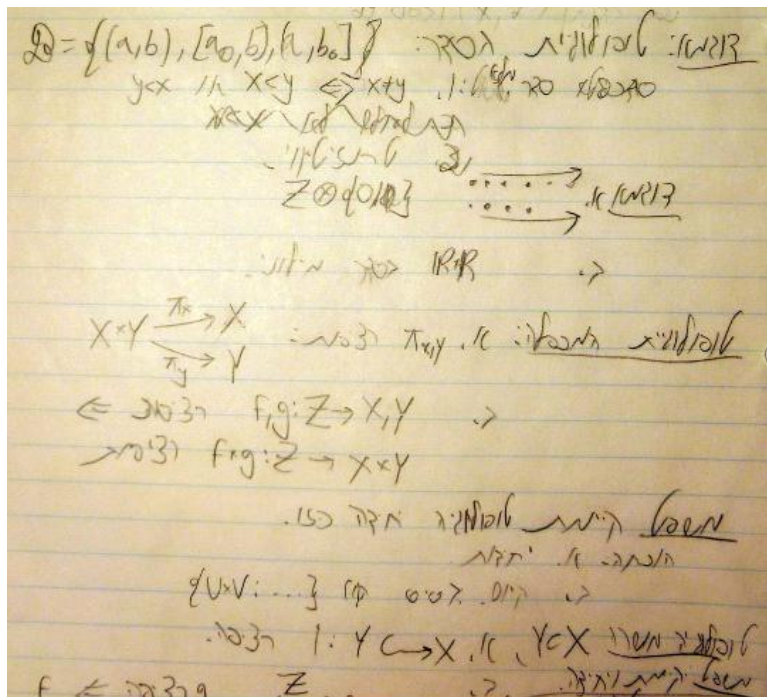 דוגמא: טופולוגיית הסדר: 𝔇 = {(a,b), [a₀,b), (a,b₀]}
סדר מלא: 1. x≠y ⇔ x<y או y<x
2. טרנזיטיבי.
דוגמא א. Z⊗{0,1}
ב. R×R בסדר מילוני.
טופולוגיית המכפלה: א. π_{x,y} רציפות: X×Y →^{πx} X
→^{πy} Y
ב. f,g:Z→X,Y רציפות ⇐
f×g:Z→X×Y רציפה
משפט קיימת טופולוגיה יחידה כזו.
הוכחה. א. יחידות
ב. קיום. בסיס {U×V:...}
טופולוגיה משרה Y⊂X, א. i:Y↪X רציפה.
משפט קיימת ויחידה. ב. Z g רציפה ⇐ f